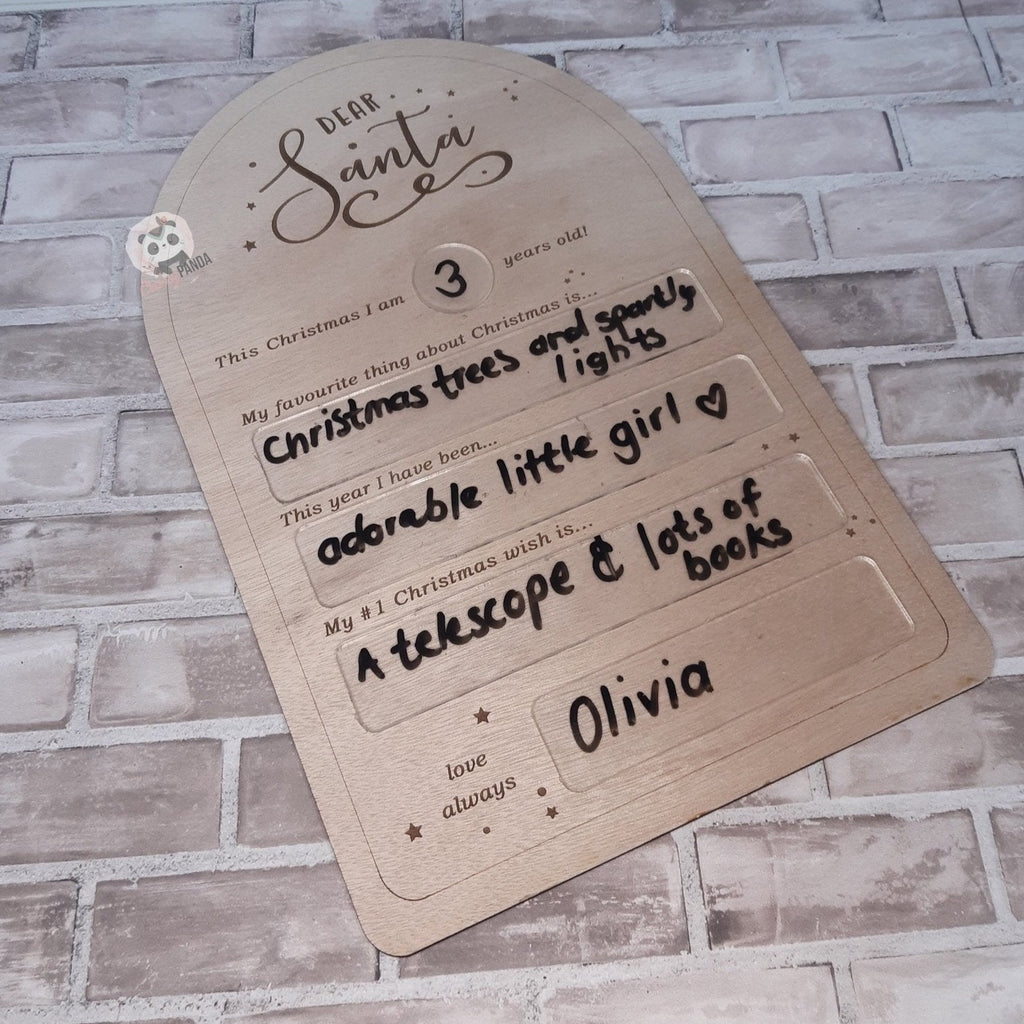 DEAR
Santa
This Christmas I am 3 years old!
My favourite thing about Christmas is...
Christmas trees and sparkly
lights
This year I have been...
adorable little girl ♡
My #1 Christmas wish is...
A telescope & lots of
books
love
always
Olivia
PANDA